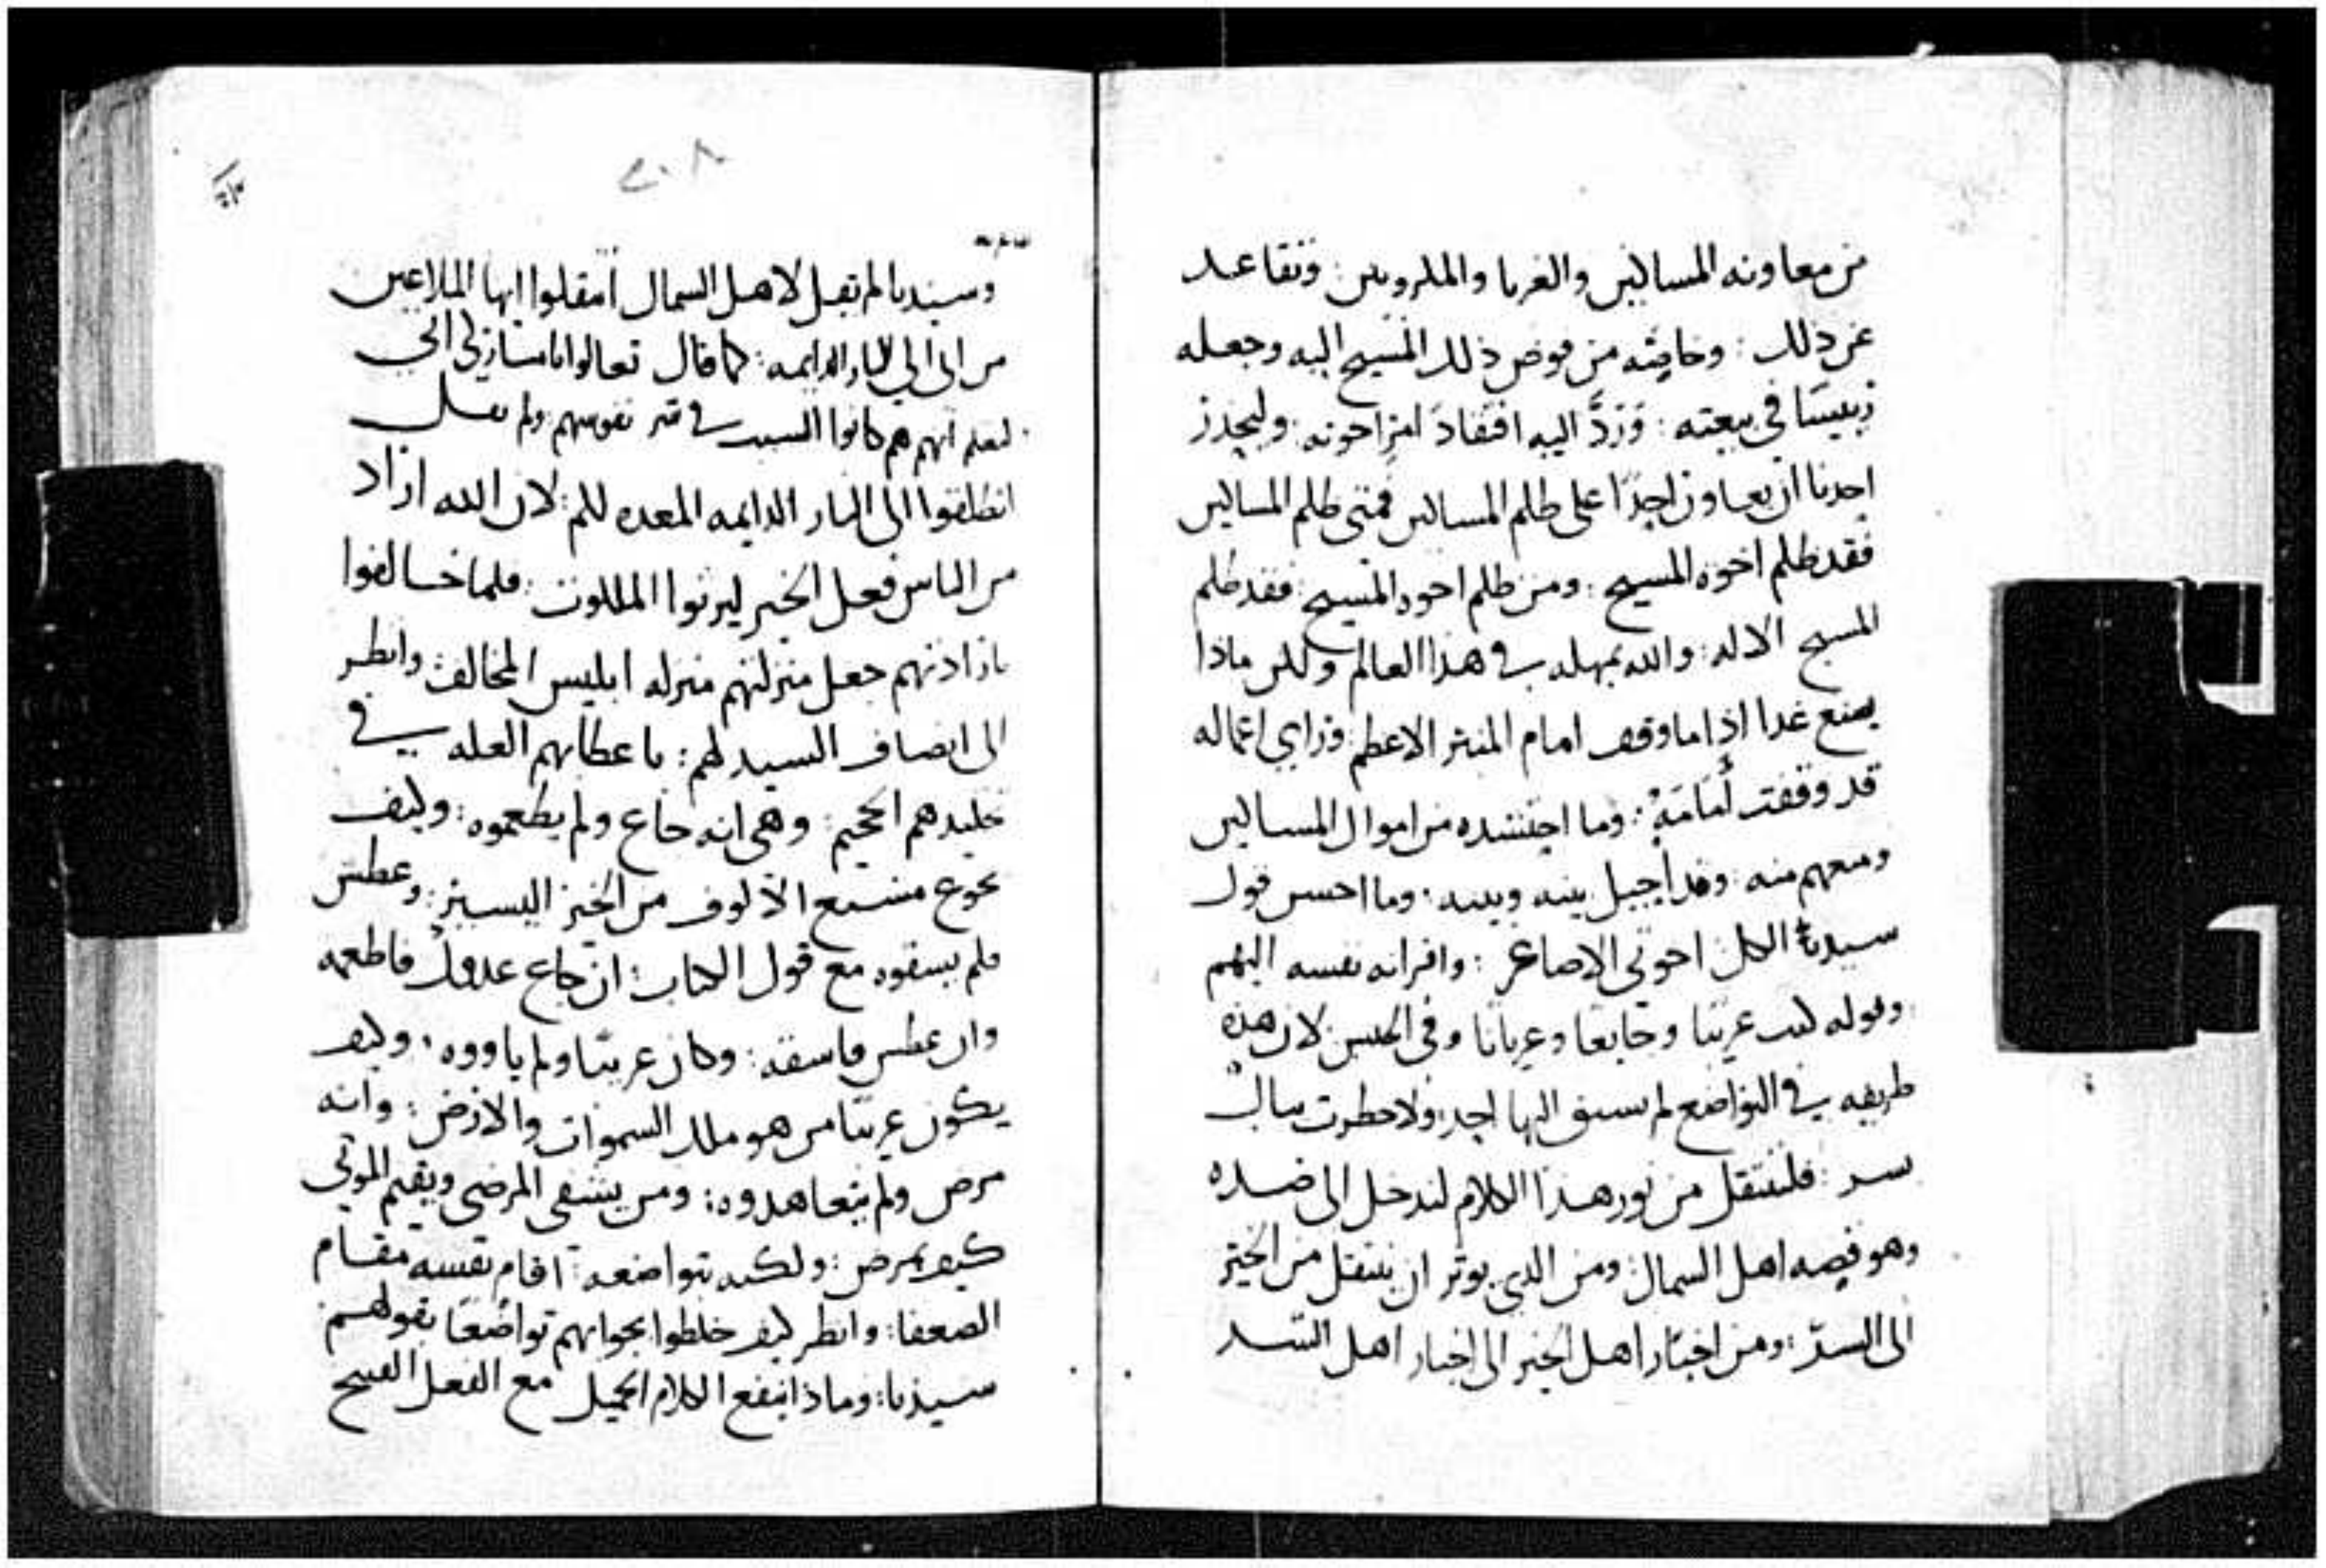 من معاونه المساكين والغربا والمكروبين : وتقاعد
عن ذلك : وخاصّه من فوض ذلك المسيح اليه وجعله
رييسًا في بيعته : وَرَدَّ اليه افتقادَ امر اخوته : وليحذر
احدنا ان يعاون احدًا على ظلم المساكين فمتى ظلم المساكين
فقد ظلم اخوه المسيح : ومن ظلم اخوه المسيح : فقد ظلم
المسيح الاله : والله يمهله في هذا العالم ولكن ماذا
يصنع غدا اذا ما وقف امام المنبر الاعظم : وراي اعماله
قد وقفت أمَامَهُ : وما احتشده من اموال المساكين
ومنعهم منه : وقد احيل بينه وبينه : وما احسن قول
سيدنا الكل اخوتي الاصاغر : واقرانه نفسه اليهم
وقوله كنت غريبًا وجايعًا وعريانا وفي الحبس لان هذه
طريقه في التواضع لم يسبق اليها احد : ولا خطرت ببال
بشر : فلننتقل من نور هذا الكلام لندخل الى ضده
وهو قصه اهل الشمال : ومن الذي يوثر ان ينتقل من الخير
الى الشرّ : ومن اخبار اهل الخير الى اخبار اهل الشر
٢٠٨
وسيدنا لم يقل لاهل الشمال انتقلوا ايها الملاعين
من ابي الى النار الدايمه : كما قال تعالوا يا مباركي ابي
ليعلم انهم هم كانوا السبب في شر نفوسهم ولم يقل
انطلقوا الى النار الدايمه المعده لكم : لان الله اراد
من الناس فعل الخير ليرثوا الملكوت : فلما خالفوا
بارادتهم جعل منزلتهم منزله ابليس المخالف : وانظر
الى انصاف السيد لهم : باعطايهم العله في
تخليدهم الجحيم : وهي انه جاع ولم يطعموه : وكيف
يجوع مشبع الالوف من الخبز اليسير : وعطش
فلم يسقوه مع قول الكتاب : ان جاع عدوك فاطعمه
وان عطش فاسقه : وكان غريبًا ولم ياووه : وكيف
يكون غريبًا من هو ملك السموات والارض : وانه
مرض ولم يتعاهدوه : ومن يشفي المرضى ويقيم الموتى
كيف يمرض : ولكنه بتواضعه اقام نفسه مقام
الضعفا : وانظر كيف خلطوا بجوابهم تواضعًا بقولهم
سيدنا : وماذا ينفع الكلام الجميل مع الفعل القبيح